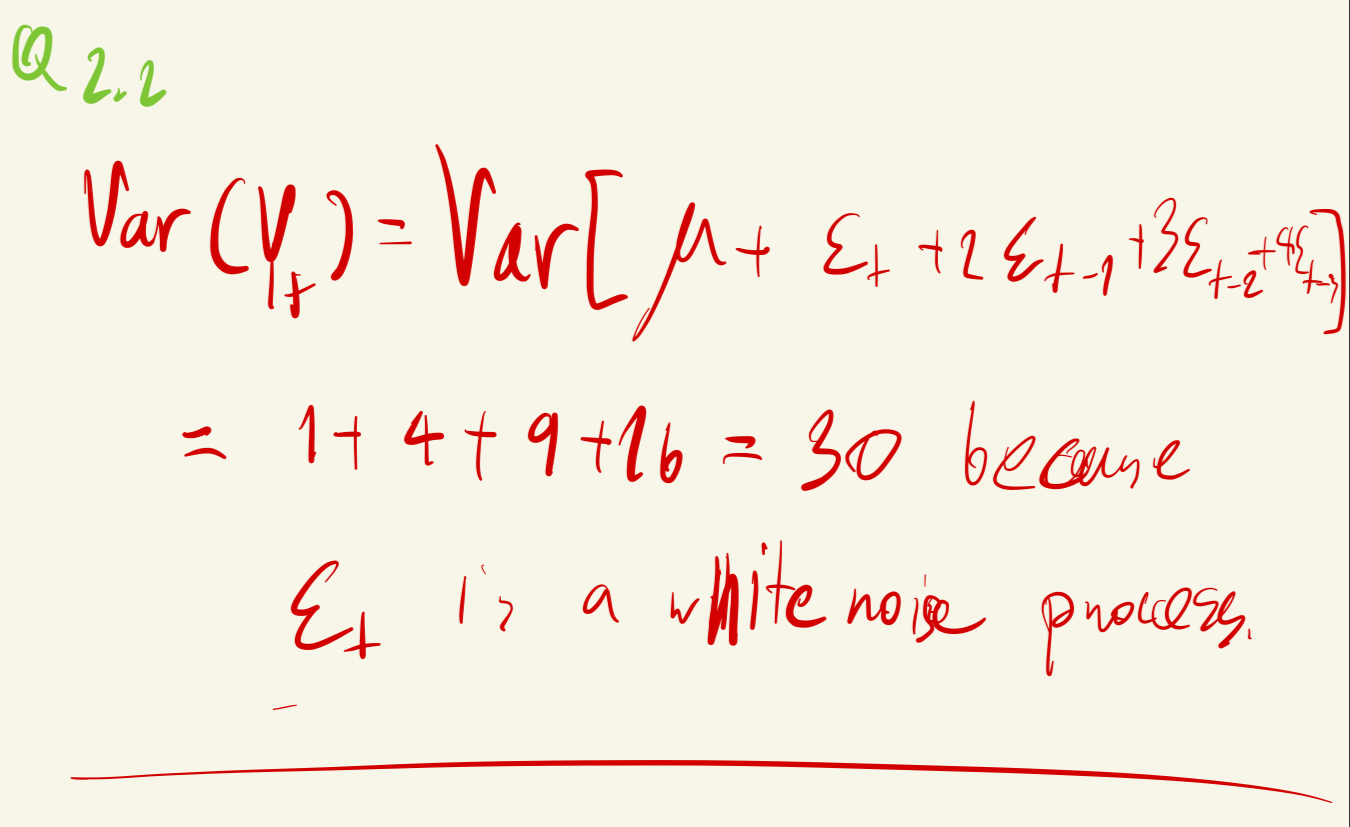 Q 2.2
Var(Y_t) = Var[μ + ε_t + 2ε_{t-1} + 3ε_{t-2} + 4ε_{t-3}]
= 1 + 4 + 9 + 16 = 30 because
ε_t is a white noise process.